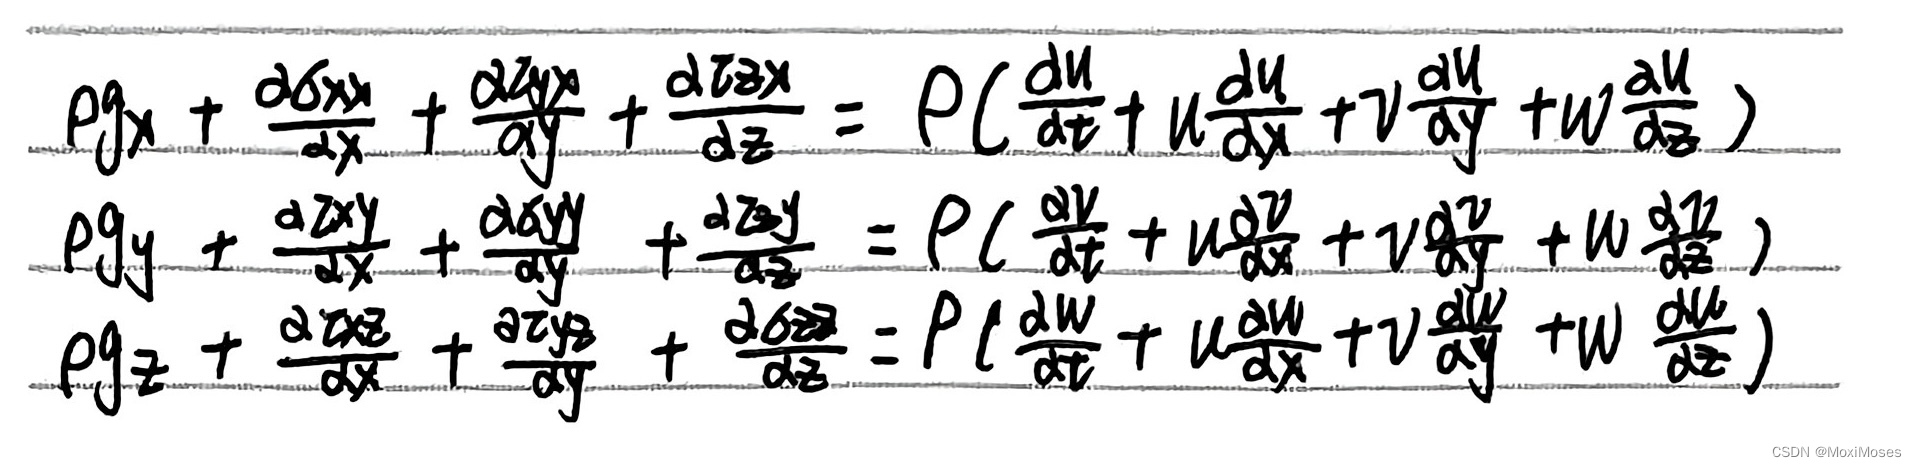 ρgx + ∂σxx/∂x + ∂τyx/∂y + ∂τzx/∂z = ρ(∂u/∂t + u∂u/∂x + v∂u/∂y + w∂u/∂z)
ρgy + ∂τxy/∂x + ∂σyy/∂y + ∂τzy/∂z = ρ(∂v/∂t + u∂v/∂x + v∂v/∂y + w∂v/∂z)
ρgz + ∂τxz/∂x + ∂τyz/∂y + ∂σzz/∂z = ρ(∂w/∂t + u∂w/∂x + v∂w/∂y + w∂u/∂z)
CSDN @MoxiMoses